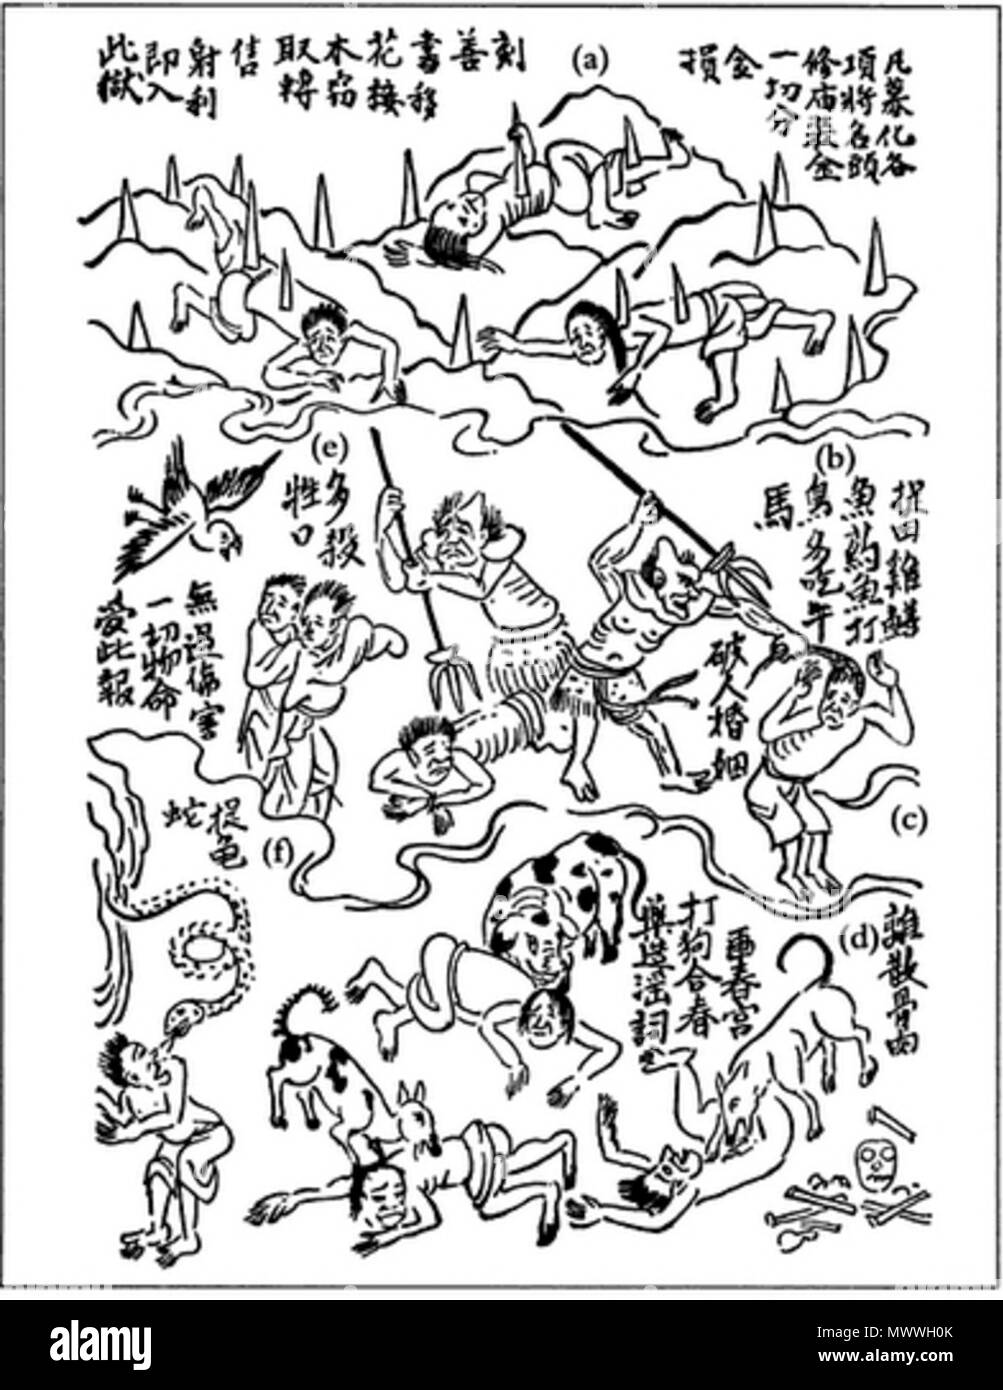 凡募化各
項將名頭
修庙裝金
一切分
金
損
(a)
刻
善
書移
花接
木窃
取轉
售
射利
即入
此獄
(b)
捉田雞鱔
魚釣魚打
鳥多吃牛
馬
(e)
多殺
牲口
無過傷害
一切物命
受此報
破人婚姻
(c)
捉龟
蛇
(f)
(d)
離散骨肉
画春宮
打狗合春
藥造淫詞
alamy
Image ID: MWWH0K
www.alamy.com